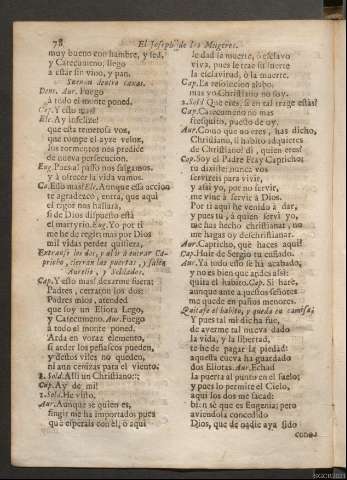 78
El Joseph de las Mugeres.
muy bueno con hambre, y sed,
y Catecumeno, llego
a estar sin vino, y pan.
Suenan dentro caxas.
Dent. Aur. Fuego
à todo el monte poned.
Cap. Y esto mas?
Ele. Ay infelize!
que esta temerosa voz,
que rompe el ayre veloz,
los tormentos nos predice
de nueva persecucion.
Eug. Pues al passo nos salgamos,
y à ofrecer la vida vamos.
Ca. Esso mas? Ele. Aunque essa accion
te agradezco, entra, que aqui
el rigor nos hallará,
si de Dios dispuesto está
el martyrio. Eug. Yo por ti
no he de regirme, mas por Dios
mil vidas perder quisiera.
Entranse los dos, y al ir à entrar Ca-
pricho, cierran las puertas, y salen
Aurelio, y Soldados.
Cap. Y esso mas! dexarme fuera!
Padres, cerraron los dos:
Padres mios, atended
que soy un Eliota Lego,
y Catecumeno. Aur. Fuego
à todo el monte poned.
Arda en voraz elemento,
si arder los peñascos pueden,
y destos viles no queden,
ni aun cenizas para el viento.
2. Sold. Alli un Christiano:::
Cap. Ay de mi!
1. Sold. He visto.
Aur. Aunque se quien es,
fingir me ha importado, pues
que esperais con èl, ò aqui
le dad la muerte, ò esclavo
viva, pues le trae su suerte
la esclavitud, ò la muerte.
Cap. La resolucion alabo,
mas yo Christiano no soy.
2. Sold. Que eres, si en tal trage estás?
Cap. Catecumeno no mas
fresquito, puesto de oy.
Aur. Como que no eres, has dicho,
Christiano, si habito adquieres
de Christiano? di, quien eres?
Cap. Soy el Padre Fray Capricho;
tu dixiste: nunca vos
serviréis para vivir,
y assi yo, por no servir,
me vine à servir à Dios.
Por ti aqui he venido à dar,
y pues tu, à quien serví yo,
me has hecho christianar, no
me hagas oy deschristianar.
Aur. Capricho, què haces aqui?
Cap. Huir de Sergio tu cuñado.
Aur. Ya todo esso se ha acabado,
y no es bien que andes assi:
quita el habito. Cap. Si haré,
aunque ante aquestos señores
me quede en paños menores.
Quitase el habito, y queda en camisa.
Y pues tal mi dicha fue,
de averme tal nueva dado
la vida, y la libertad,
te he de pagar la piedad:
aquella cueva ha guardado
dos Eliotas. Aur. Echad
la puerta al punto en el suelo;
y pues lo permite el Cielo,
aqui los dos me sacad:
bien sé que es Eugenia; pero
aviendola concedido
Dios, que de nadie aya sido
cono-